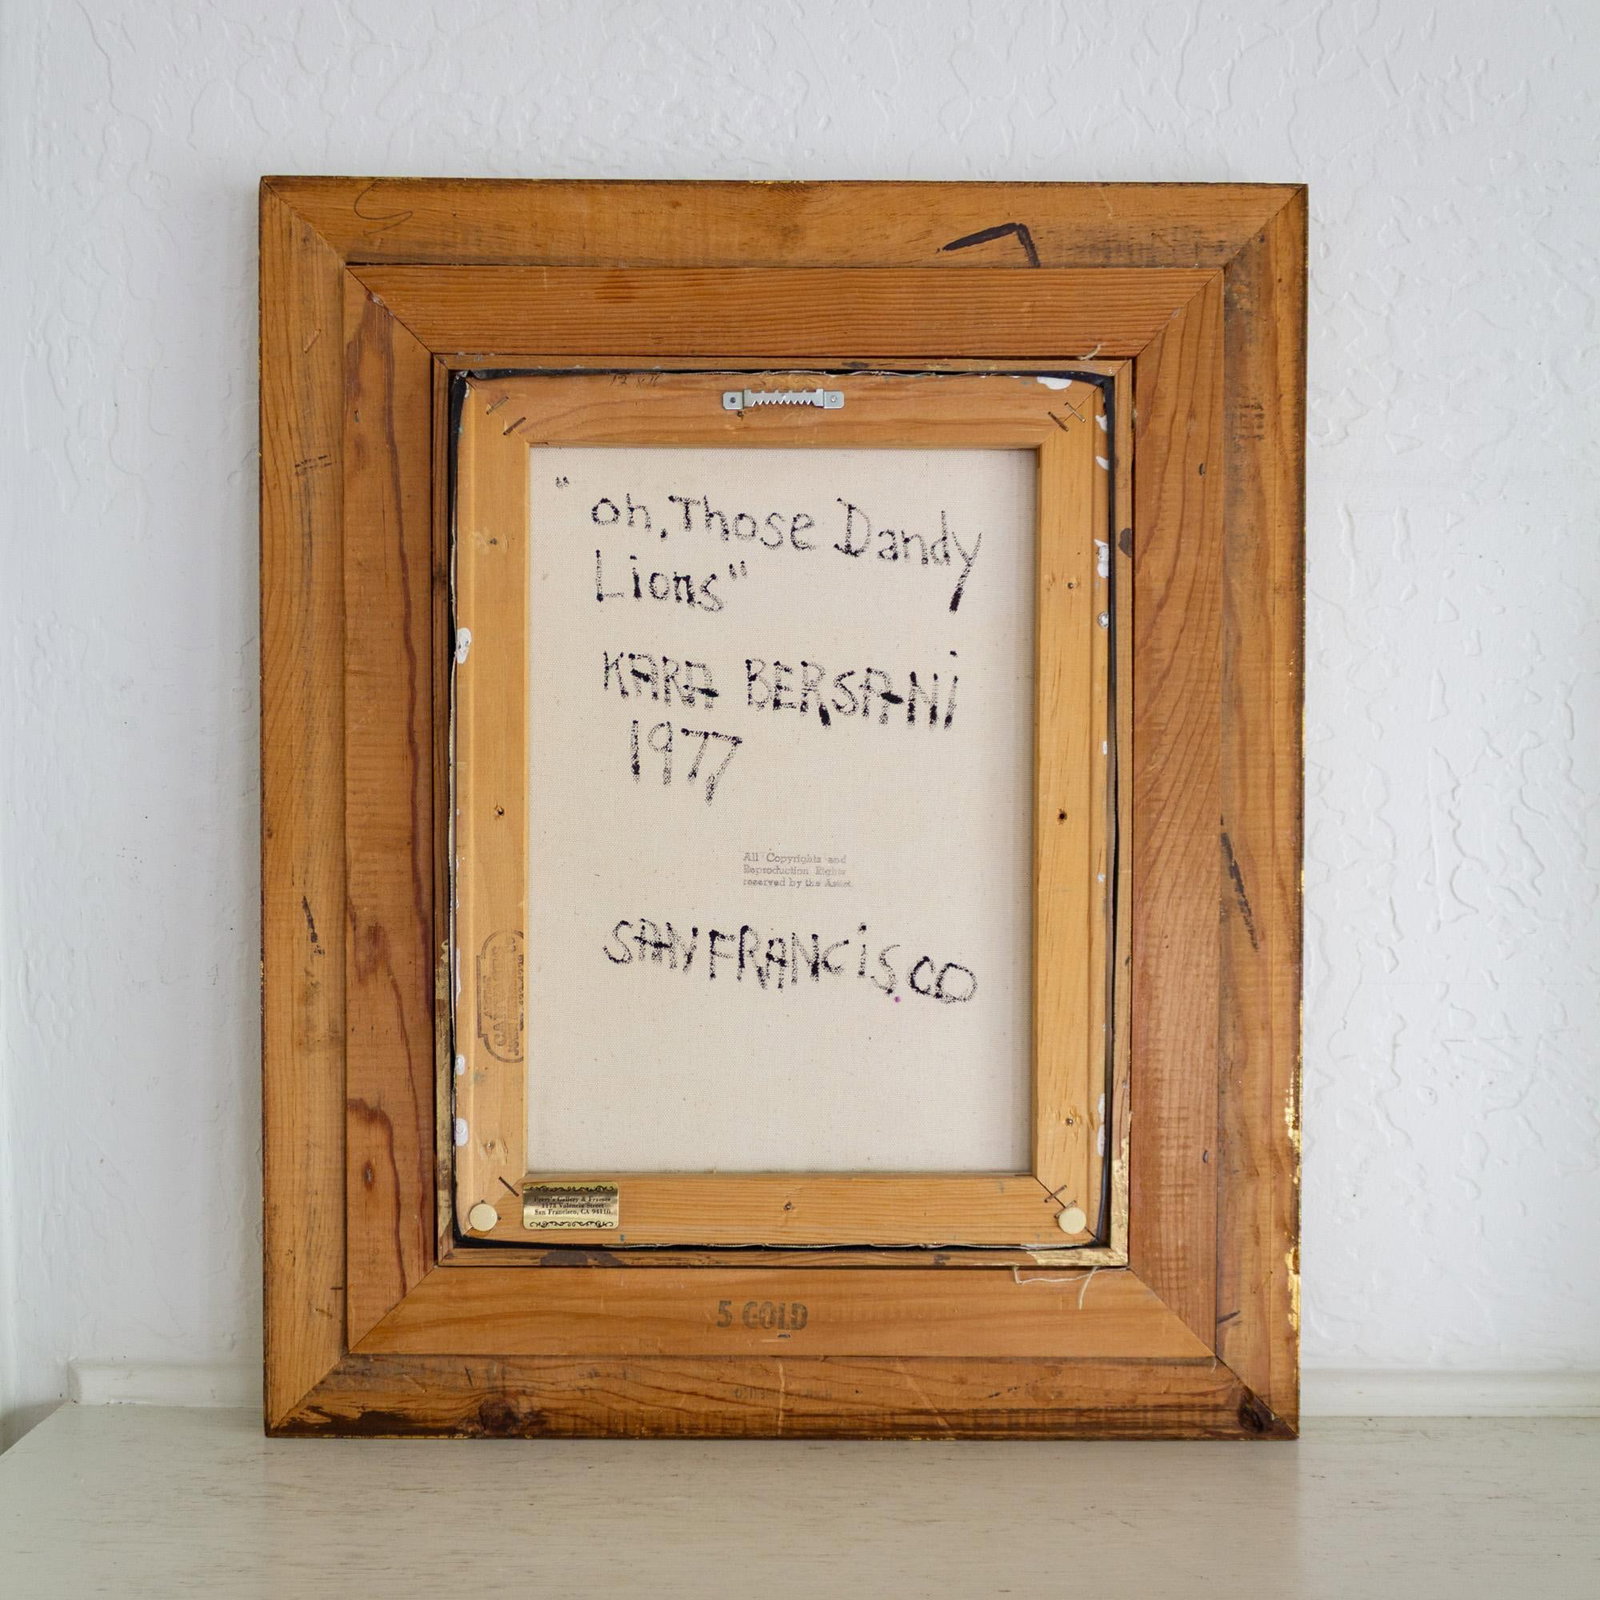 "Oh, Those Dandy
Lions"
KARA BERSANI
1977
All Copyrights and
Reproduction Rights
reserved by the Artist
SAN FRANCISCO
Gallery & Frames
Valencia Street
San Francisco, CA 94110
5 GOLD